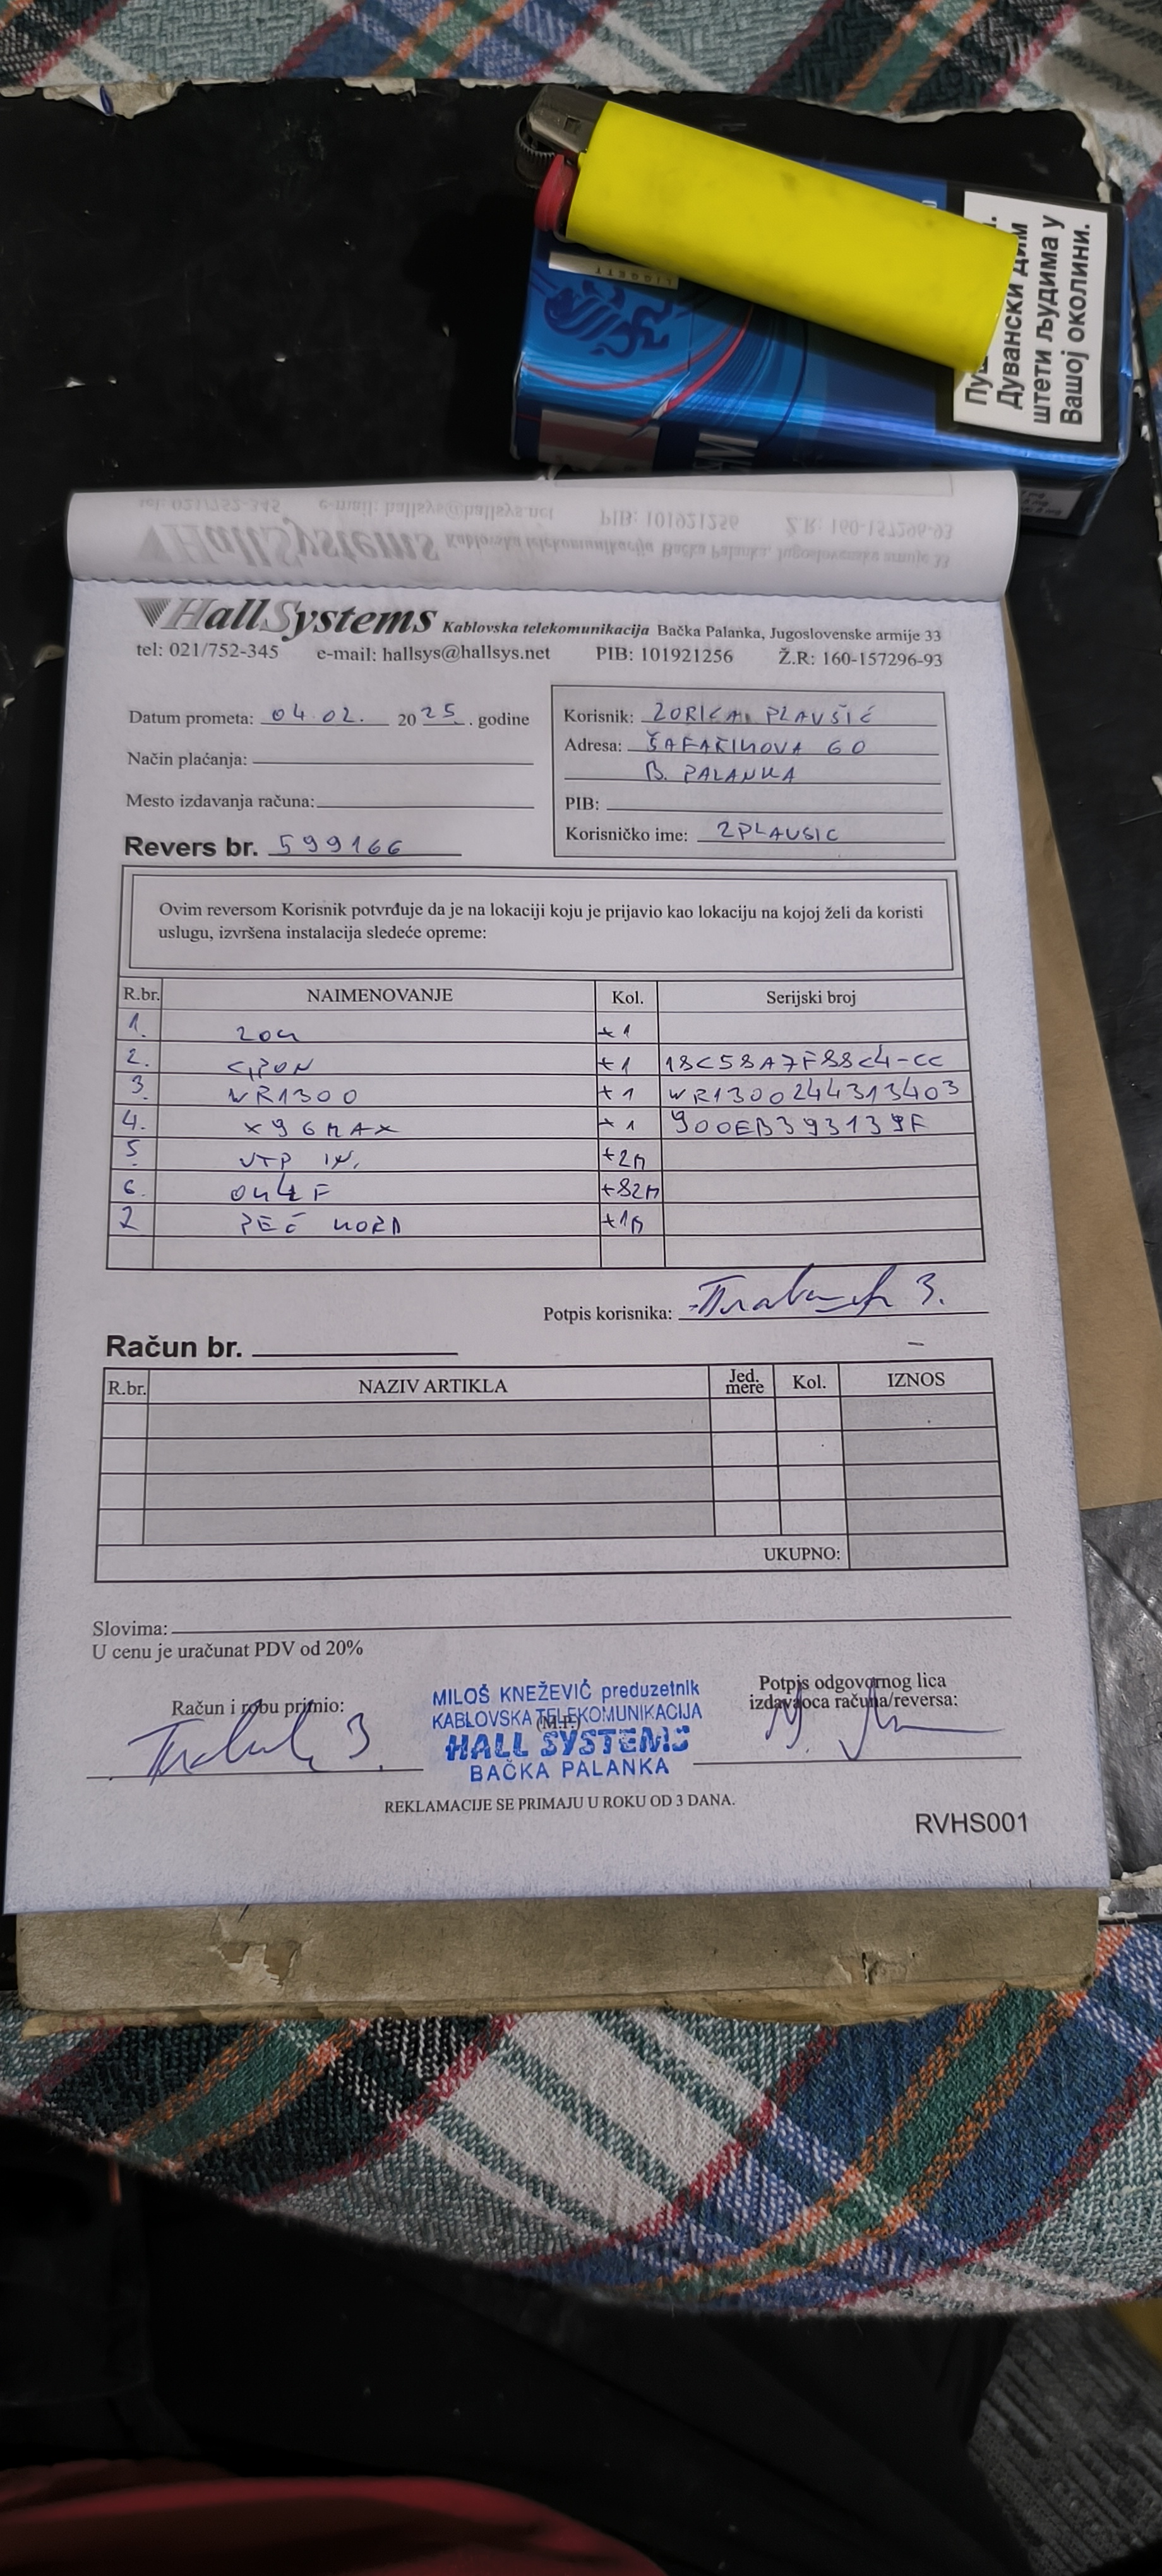 Пуш
Дувански дим
штети људима у
Вашој околини.
LIGGETT
HallSystems Kablovska telekomunikacija Bačka Palanka, Jugoslovenske armije 33
tel: 021/752-345 e-mail: hallsys@hallsys.net PIB: 101921256 Ž.R: 160-157296-93
HallSystems Kablovska telekomunikacija Bačka Palanka, Jugoslovenske armije 33
tel: 021/752-345 e-mail: hallsys@hallsys.net PIB: 101921256 Ž.R: 160-157296-93
Datum prometa: 04.02. 2025. godine
Način plaćanja:
Mesto izdavanja računa:
Revers br. 599166
Korisnik: ZORICA PLAVŠIĆ
Adresa: ŠAFARIKOVA 60
B. PALANKA
PIB:
Korisničko ime: ZPLAVSIC
Ovim reversom Korisnik potvrđuje da je na lokaciji koju je prijavio kao lokaciju na kojoj želi da koristi
uslugu, izvršena instalacija sledeće opreme:
R.br. NAIMENOVANJE Kol. Serijski broj
1. ZOK +1
2. GPON +1 18C58A7F88C4-CC
3. WR1300 +1 WR1300244313403
4. X96MAX +1 900EB393139F
5 UTP IN. +2M
6. +82M
7 KORD +1M
Potpis korisnika:
Račun br.
R.br. NAZIV ARTIKLA Jed. mere Kol. IZNOS
UKUPNO:
Slovima:
U cenu je uračunat PDV od 20%
Račun i robu primio:
MILOŠ KNEŽEVIĆ preduzetnik
KABLOVSKA TELEKOMUNIKACIJA
(M.P.)
HALL SYSTEMS
BAČKA PALANKA
Potpis odgovornog lica
izdavaoca računa/reversa:
REKLAMACIJE SE PRIMAJU U ROKU OD 3 DANA.
RVHS001